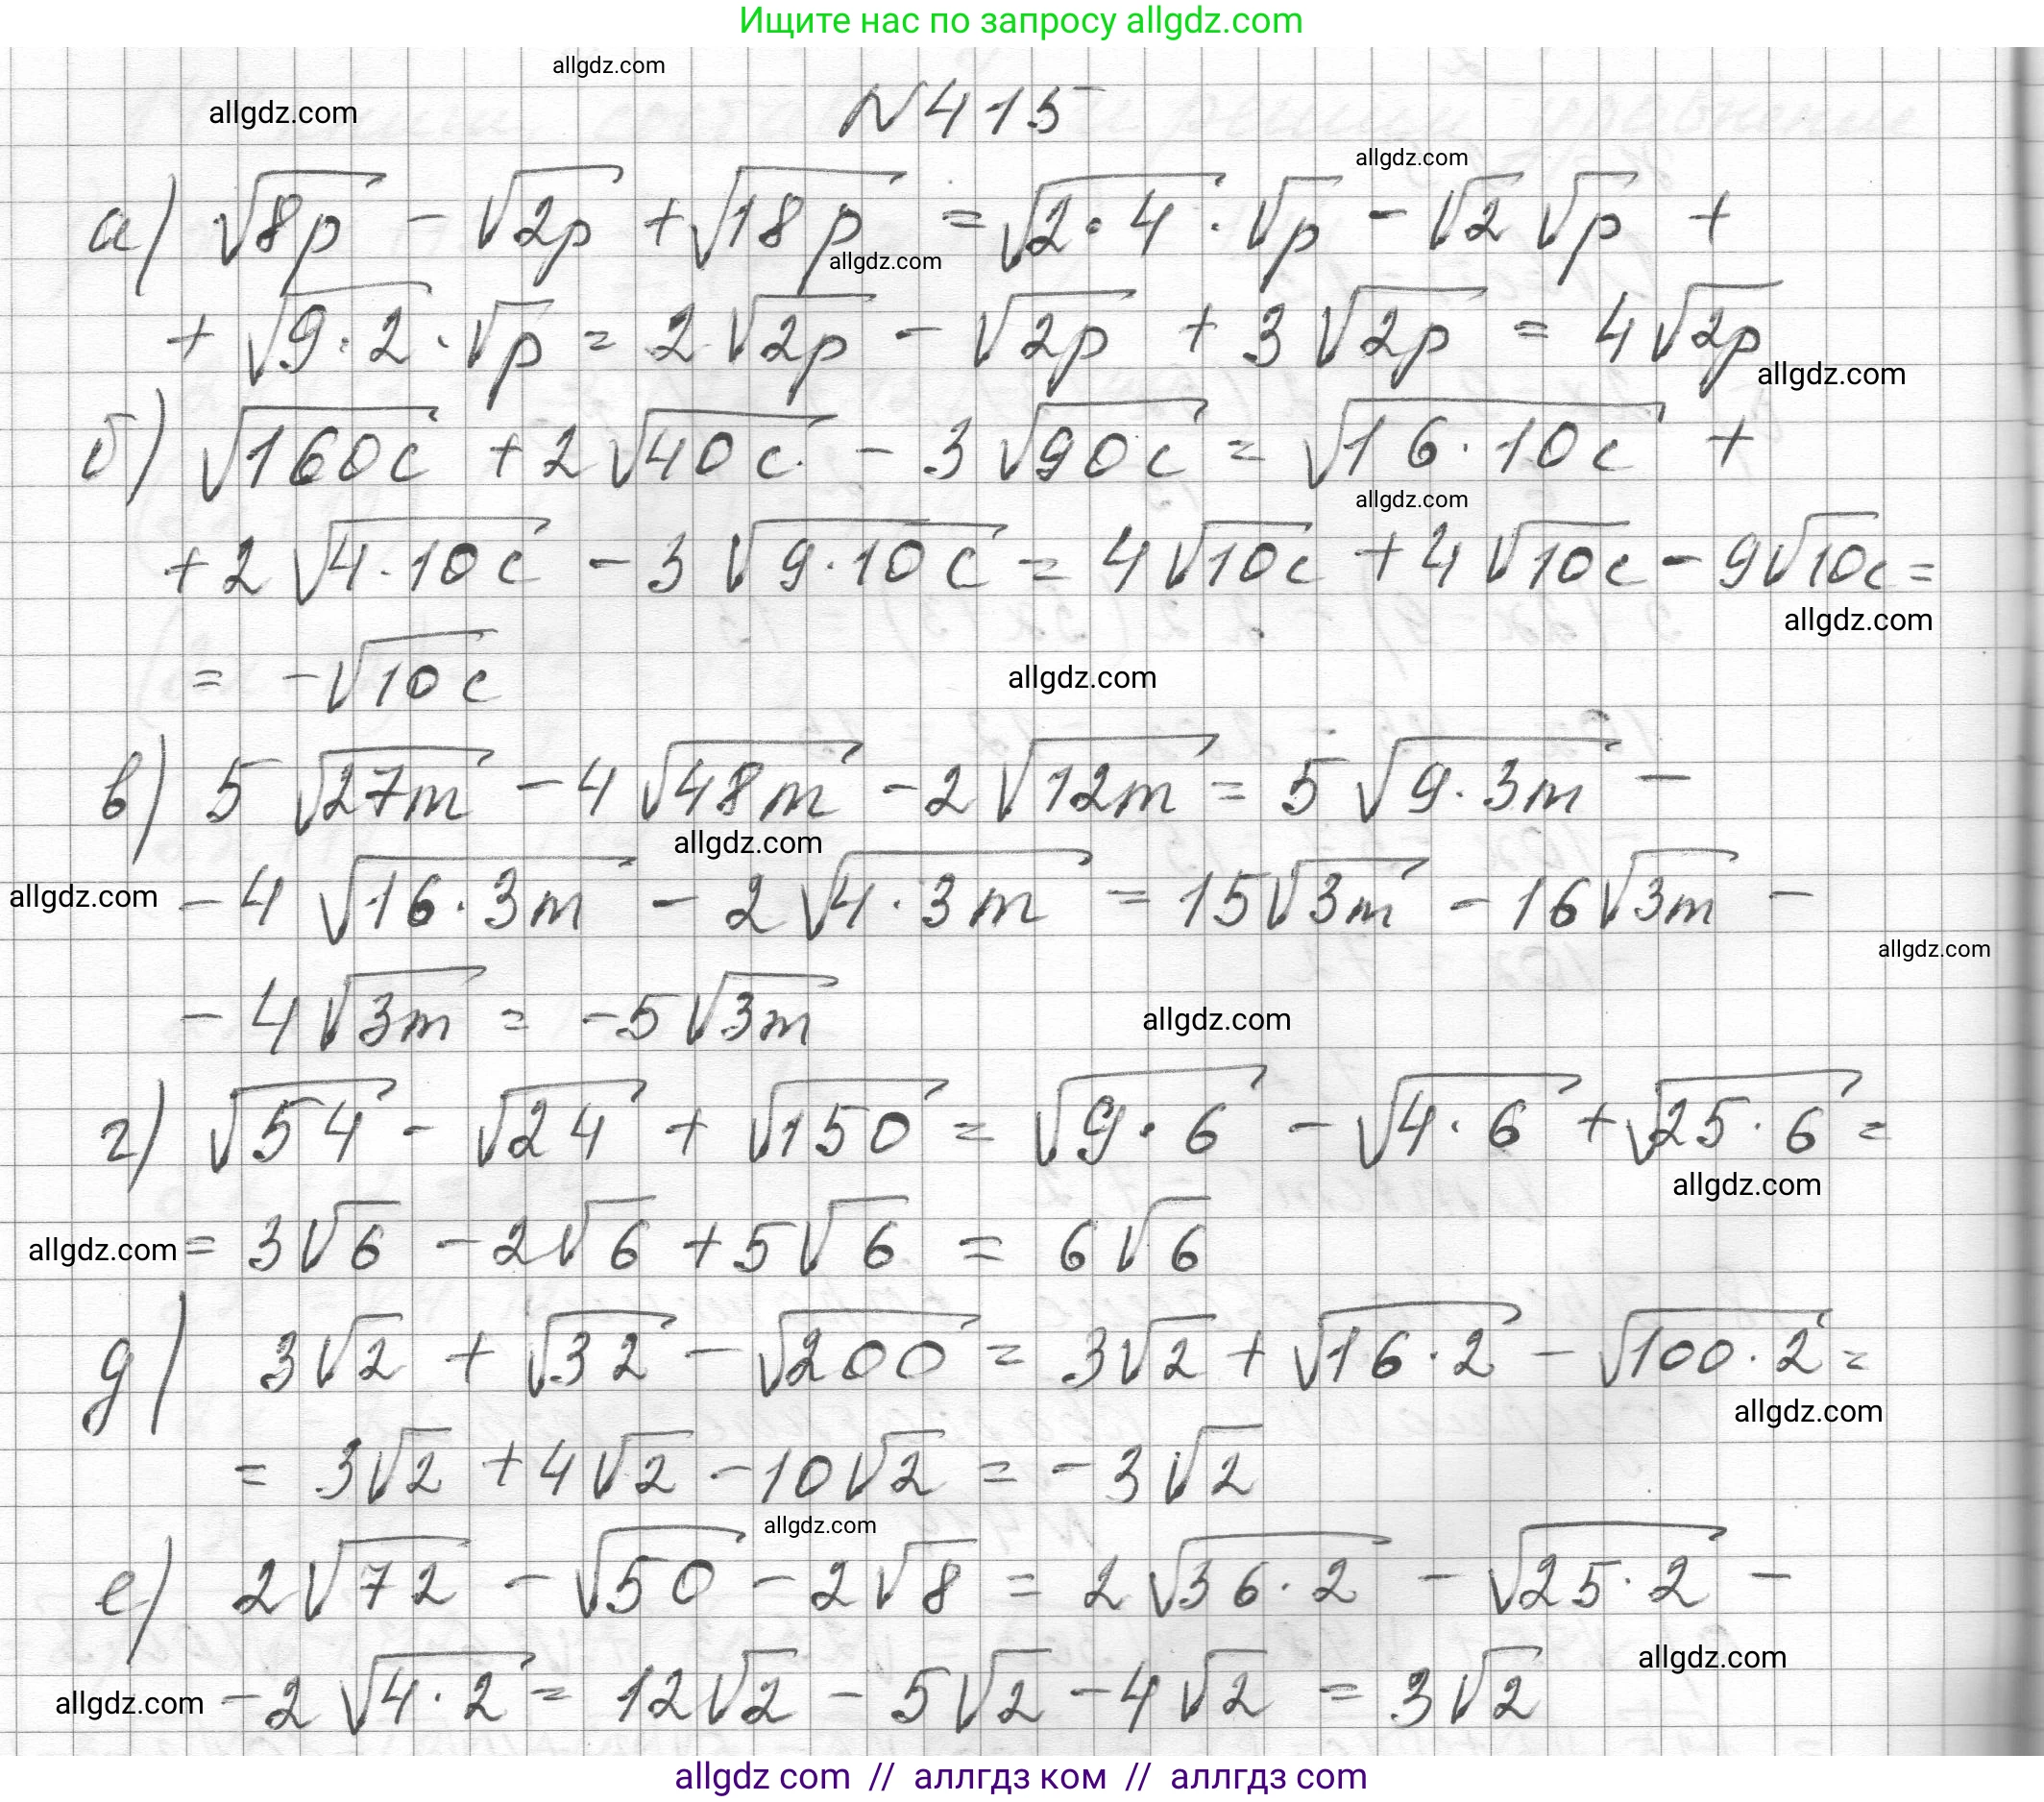 Ищите нас по запросу allgdz.com
allgdz.com
allgdz.com
N 415
allgdz.com
а) √8p - √2p + √18p = √2·4 · √p - √2 √p +
allgdz.com
+ √9·2 · √p = 2√2p - √2p + 3√2p = 4√2p
allgdz.com
б) √160c + 2√40c - 3√90c = √16·10c +
allgdz.com
+ 2√4·10c - 3√9·10c = 4√10c + 4√10c - 9√10c =
allgdz.com
= -√10c
allgdz.com
в) 5√27m - 4√48m - 2√12m = 5√9·3m -
allgdz.com
allgdz.com
- 4√16·3m - 2√4·3m = 15√3m - 16√3m -
allgdz.com
- 4√3m = -5√3m
allgdz.com
г) √54 - √24 + √150 = √9·6 - √4·6 + √25·6 =
allgdz.com
allgdz.com
= 3√6 - 2√6 + 5√6 = 6√6
д) 3√2 + √32 - √200 = 3√2 + √16·2 - √100·2 =
allgdz.com
= 3√2 + 4√2 - 10√2 = -3√2
allgdz.com
е) 2√72 - √50 - 2√8 = 2√36·2 - √25·2 -
allgdz.com
allgdz.com
- 2√4·2 = 12√2 - 5√2 - 4√2 = 3√2
allgdz com // аллгдз ком // аллгдз com